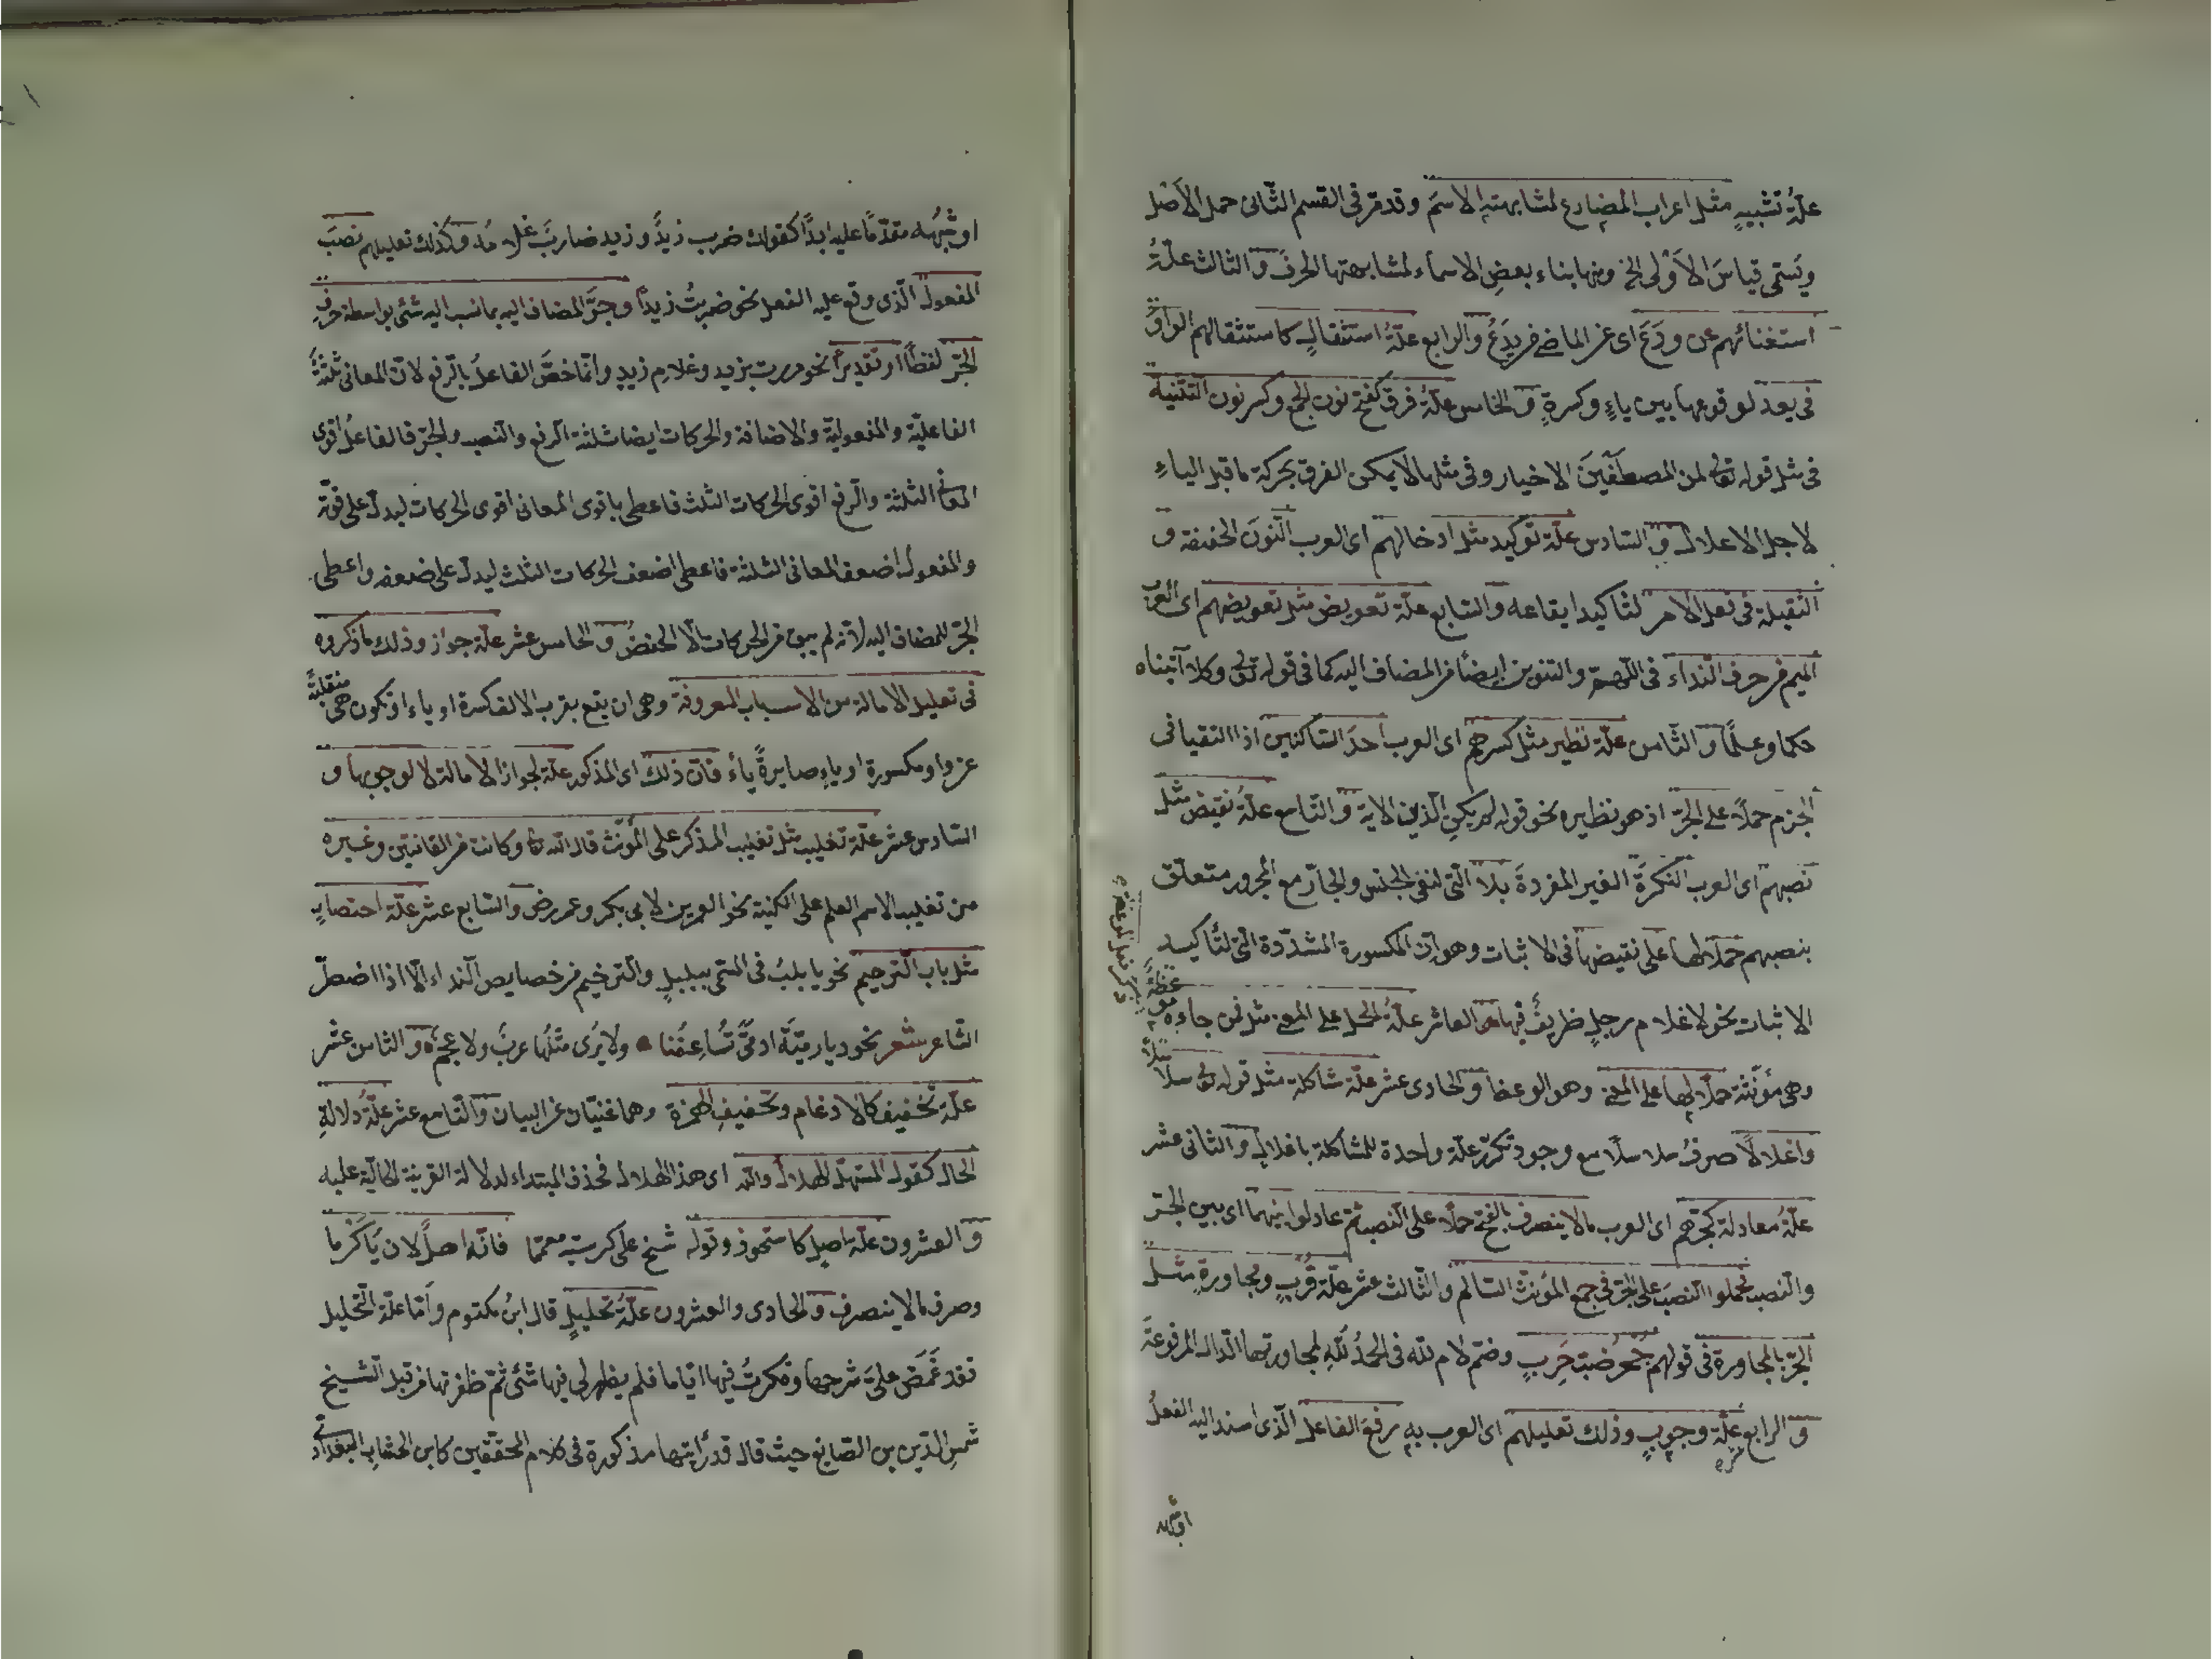 علّةُ تشبيهٍ مثل اعراب المضارع لمشابهته الاسمَ وقد مرّ فى القسم الثّانى حمل الأصْل
ويَسمّى قياسَ الاَوْلى الخ ومنها بناء بعضِ الاسماء لمشابهتها الحرفَ و الثالث علّةُ
استغنائهم عن ودَعَ اى عن الماضى فى يَدَعُ والرابع علّةُ استثقالٍ كاستثقالهم الواوَ
فى يعد لوقوعها بين ياءٍ وكسرةٍ و الخامس علّةُ فرق كفتح نون الجمع وكسر نون التثنية
فى مثل قوله تعالى لمن المصطَفَيْنَ الاخيار وفى مثلها لا يمكن الفرق بحركة ما قبل الياءِ
لاجل الاعلال و السّادس علّة توكيد مثل ادخالهم اى العرب النّونَ الخفيفة و
الثقيلة فى فعل الامر لتاكيد ايقاعه والسّابع علّة تعويض مثل تعويضهم اى العرب
الميم من حرف النّداء فى اللّهمّ والتنوين ايضًا من المضاف اليه كما فى قوله تعالى وكلا آتيناه
حكما وعلمًا و الثّامن علّة نظير مثل كسرهم اى العرب احدَ السّاكنين اذا التقيا فى
الجزم حملًا على الجرّ اذ هو نظيره نحو قوله لم يكنِ الّذين الاية و التّاسع علّةُ نقيض مثل
نصبهم اى العرب النكرةَ الغير المفردةَ بلا الّتى لنفى الجنس والجارّ مع المجرور متعلّق
بنصبهم حملًا لها على نقيضها فى الاثبات وهو انّ المكسورة المشدّدة الّتى لتأكيد
الاثبات نحو لا غلام رجلٍ ظريفٌ فيها و العاشر علّةُ الحمل على المعنى مثل فمن جاءه موعظةٌ
وهى مؤنّثة حملًا لها على المعنى وهو الوعظ و الحادى عشر علّة مشاكلة مثل قوله تعالى سلاسلًا
واغلالًا صرفُ سلاسلًا مع وجود تكرّر علّة واحدة للمشاكلة باغلالٍ و الثانى عشر
علّةُ معادلة كجرّهم اى العرب ما لا ينصرف بالفتح حملًا على النّصب ثم عادلوا بينهما اى بين الجرّ
والنّصب فحملوا النّصبَ على الجرّ فى جمع المؤنّث السّالم و الثّالث عشر علّة قُربٍ ومجاورةٍ مثل
الجرّ بالمجاورة فى قولهم جُحرُ ضبّ خَرِبٍ وضمّ لام لله فى الحمدُ للُّه لمجاورتها الدّال المرفوعة
و الرابع عشره علّة وجوبٍ وذلك تعليلهم اى العرب به رفعَ الفاعل الّذى اسند اليه الفعلُ
او شبهُه مقدّمًا عليه ابدًا كقولك ضرب زيدٌ وزيد ضاربٌ غلامُه وكذلك تعليلهم نصبَ
المفعول الّذى وقع عليه الفعل نحو ضربتُ زيدًا وجرَّ المضاف اليه بما نسب اليه شئ بواسطة حرف
الجرّ لفظًا او تقديرًا نحو مررت بزيد وغلامِ زيدٍ وانّما خصَّ الفاعلُ بالرّفع لانّ المعانى ثلثةٌ
الفاعليّة والمفعوليّة والاضافة والحركات ايضا ثلثة الرّفع والنّصب والجرّ فالفاعلُ اقوى
المعانى الثلثة والرّفع اقوى الحركات الثلث فاعطى باقوى المعانى اقوى الحركات ليدلّ على قوّته
والمفعول اضعف المعانى الثلثة فاعطى اضعف الحركات الثلث ليدلّ على ضعفه واعطى
الجرّ للمضاف اليه لانّه لم يبق من الحركات الّا الخفض و الخامس عشر علّة جواز وذلك ما ذكروه
فى تعليل الامالة من الاسباب المعروفة وهى ان يقع بقرب الالف كسرة او ياء او تكون هى منقلبةً
عن واو مكسورة او ياءٍ صايرةً ياءً فانّ ذلك اى المذكور علّة لجواز الامالة لا لوجوبها و
السّادس عشر علّة تغليب مثل تغليب المذكر على المؤنّث قال الله تعالى وكانت من القانتين وغيره
من تغليب الاسم العلم على الكنية نحو العمرين لابى بكر وعمر رض و السّابع عشر علّة اختصاصٍ
مثل باب الترخيم نحو يا بلبُ فى المسمّى ببلبلٍ والترخيم من خصايص النّداء الّا اذا اضطرّ
الشّاعر شعر نحو ديار ميّةَ اذ مىّ تُساعفُنا ولا يُرى مثلُها عربٌ ولا عجمٌ و الثامن عشر
علّة تخفيف كالادغام وتخفيفِ الهمزة وهما غنيّان عن البيان و التّاسع عشر علّةُ دلالةِ
الحال كقول المستهلّ الهلال والله اى هذا الهلال فحذف المبتداء لدلالة القرينة الحاليّة عليه
و العشرون علّة اصلٍ كاستحوذ وقوله شيخ على كرسيّه معمّما فانّه اهلٌ لان يُأكْرَما
وصرف ما لا ينصرف و الحادى والعشرون علّةُ تحليلٍ قال ابنُ مكتوم وأمّا علّة التّحليل
فقد غَمَضَ علىّ شرحها وفكرتُ فيها ايّاما فلم يظهر لى فيها شئ ثم ظفرتها من قبل الشّيخ
شمس الدّين بن الصّايغ حيث قال قد رأيتها مذكورة فى كلام المحقّقين كابن الخشّابِ البغدادىّ